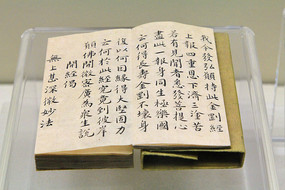 我今發弘願持此金剛經
上報四重恩下濟三塗苦
若有見聞者悉發菩提心
盡此一報身同生極樂國
云何得長壽金剛不壞身
復以何因緣得大堅固力
云何於此經究竟到彼岸
願佛開微密廣為眾生說
開經偈
無上甚深微妙法